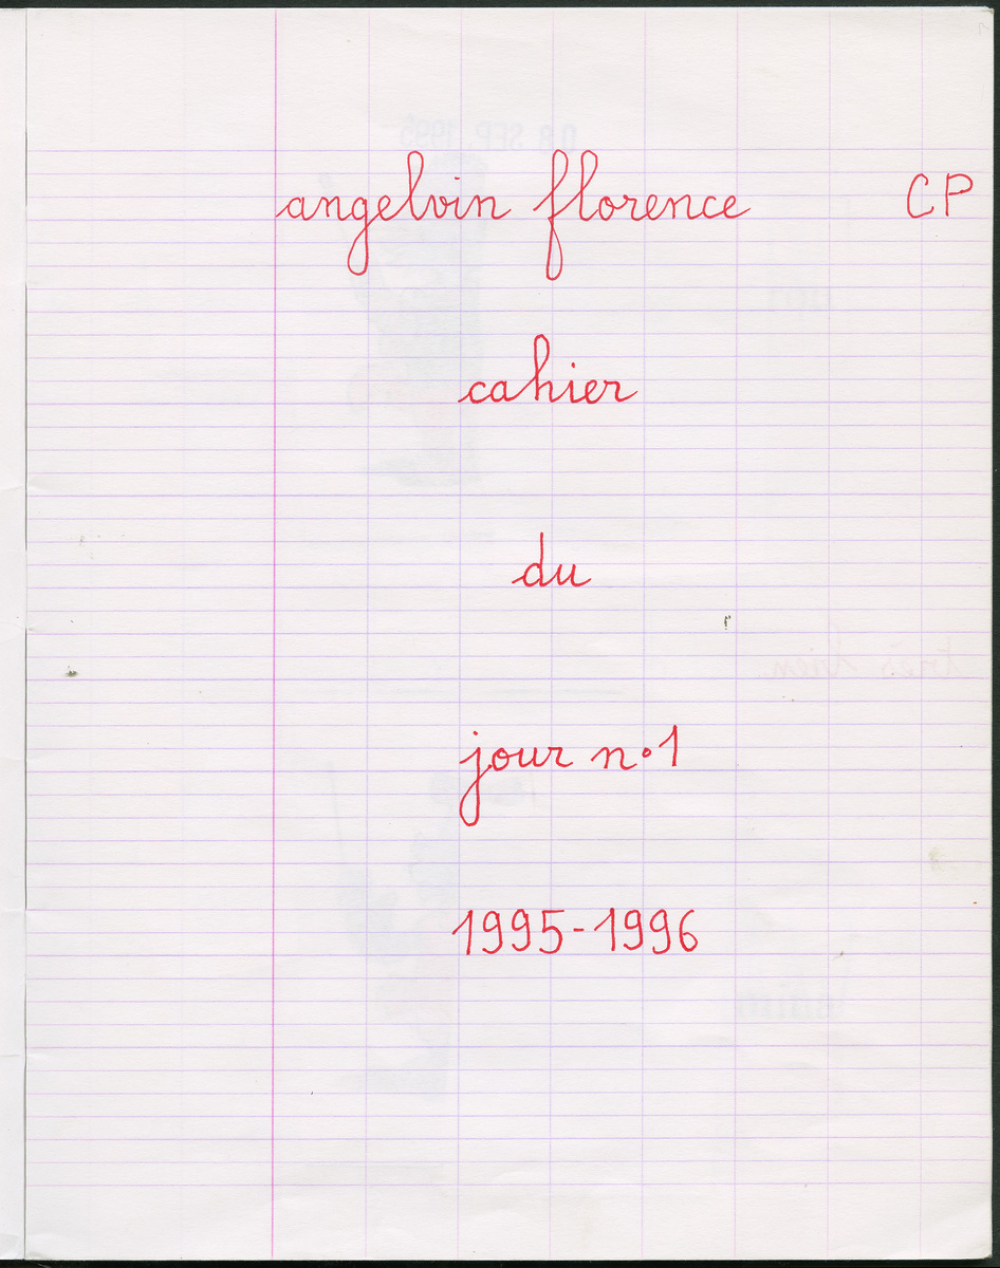 angelvin florence CP
cahier
du
jour n°1
1995-1996